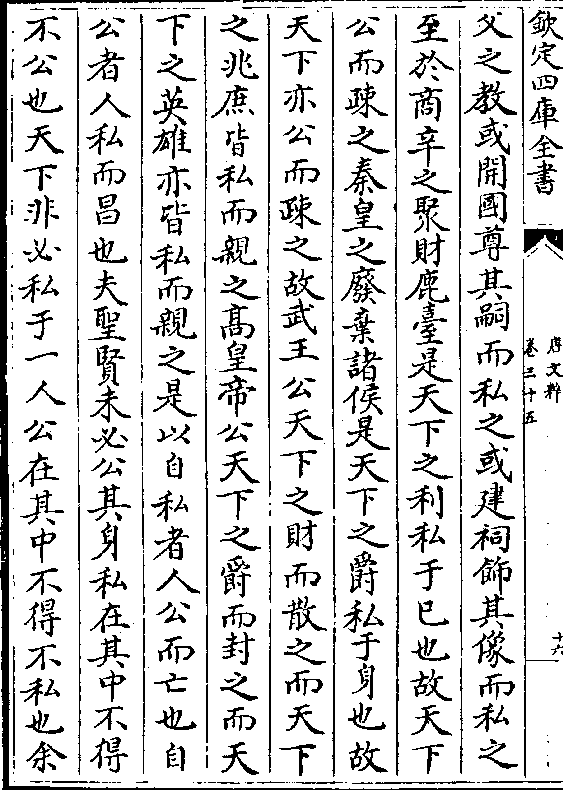 欽定四庫全書
唐文粹
卷三十五
十六
父之教或開國尊其嗣而私之或建祠飾其像而私之
至於商辛之聚財鹿臺是天下之利私于己也故天下
公而疎之秦皇之廢棄諸侯是天下之爵私于身也故
天下亦公而疎之故武王公天下之財而散之而天下
之兆庶皆私而親之髙皇帝公天下之爵而封之而天
下之英雄亦皆私而親之是以自私者人公而亡也自
公者人私而昌也夫聖賢未必公其身私在其中不得
不公也天下非必私于一人公在其中不得不私也余